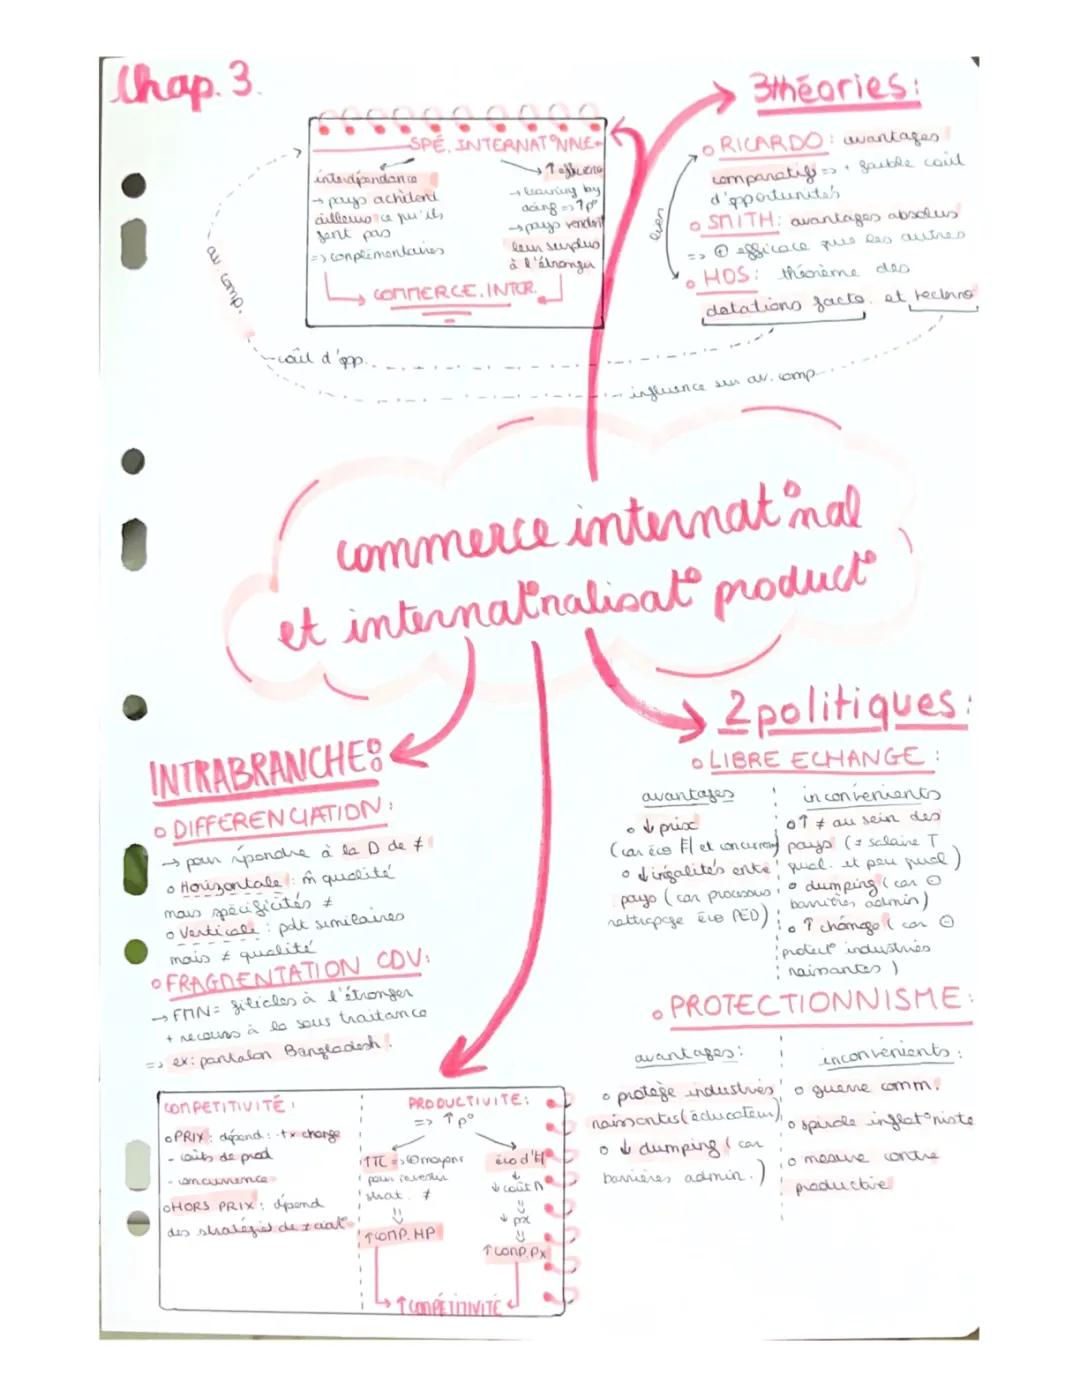 Chap. 3.
3 théories:
SPÉ. INTERNAT°NALE
interdépendance
→ pays achètent
ailleurs ce qu'ils
sont pas
=> complémentaires
↑ efficience
→ learning by
doing => ↑p°
→ pays vendent
leur surplus
à l'étranger
COMMERCE. INTER.
o RICARDO: avantages
comparatifs => + faible coût
d'opportunités
o SMITH: avantages absolus
=> ⊕ efficace que les autres
o HOS: théorème des
dotations facto. et techno
lien
av. comp.
coût d'opp.
influence sur av. comp
commerce internat°nal
et internat°nalisat° product°
INTRABRANCHE:
o DIFFERENCIATION:
→ pour répondre à la D de ≠
o Horizontale: m̂ qualité
mais spécificités ≠
o Verticale: pdt similaires
mais ≠ qualité
o FRAGMENTATION CDV:
→ FMN = filiales à l'étranger
+ recours à la sous traitance
=> ex: pantalon Bangladesh.
2 politiques:
o LIBRE ECHANGE:
avantages
o ↓ prix
(car éco El et concurren)
o ↓ inégalités entre
pays (car processus
rattrapage éco PED)
inconvénients
o ↑ ≠ au sein des
pays (≠ salaire T
qual. et peu qual)
o dumping (car ⊖
barrières admin)
o ↑ chômage (car ⊖
protect° industries
naissantes)
o PROTECTIONNISME:
avantages:
o protège industries
naissantes (éducateur)
o ↓ dumping (car
barrières admin.)
inconvénients:
o guerre comm.
o spirale inflat°niste
o mesure contre
productive
COMPETITIVITÉ:
o PRIX: dépend: - tx change
- coûts de prod
- concurrence
o HORS PRIX: dépend
des stratégies de ≠ciat°
PRODUCTIVITE:
=> ↑p°
↑TC => ⊕ moyens
pour investir
strat. ≠
⇓
↑ COMP. HP
éco d'El
↓
↓ coût M
⇓
↓ px
⇓
↑ COMP. Px
↑ COMPÉTITIVITÉ